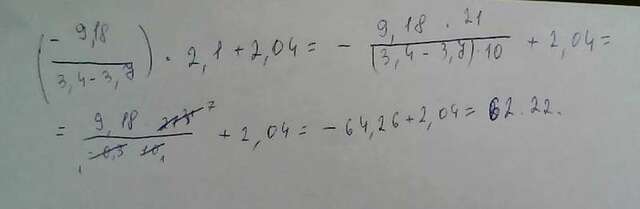 (- 9,18 / 3,4 - 3,7) · 2,1 + 2,04 = - 9,18 · 21 / (3,4 - 3,7) · 10 + 2,04 =
= 9,18 · 21 7 / - 0,3 1 10 1 + 2,04 = - 64,26 + 2,04 = 62.22.